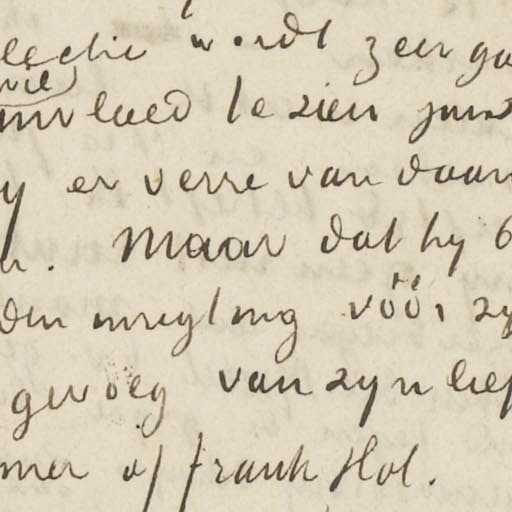 lectie wordt zeer go
vloed te zien juist
y er verre van daan
. Maar dat hy b
den inreyling vóór zy
genoeg van zyn lief
mer of Frank Hol.